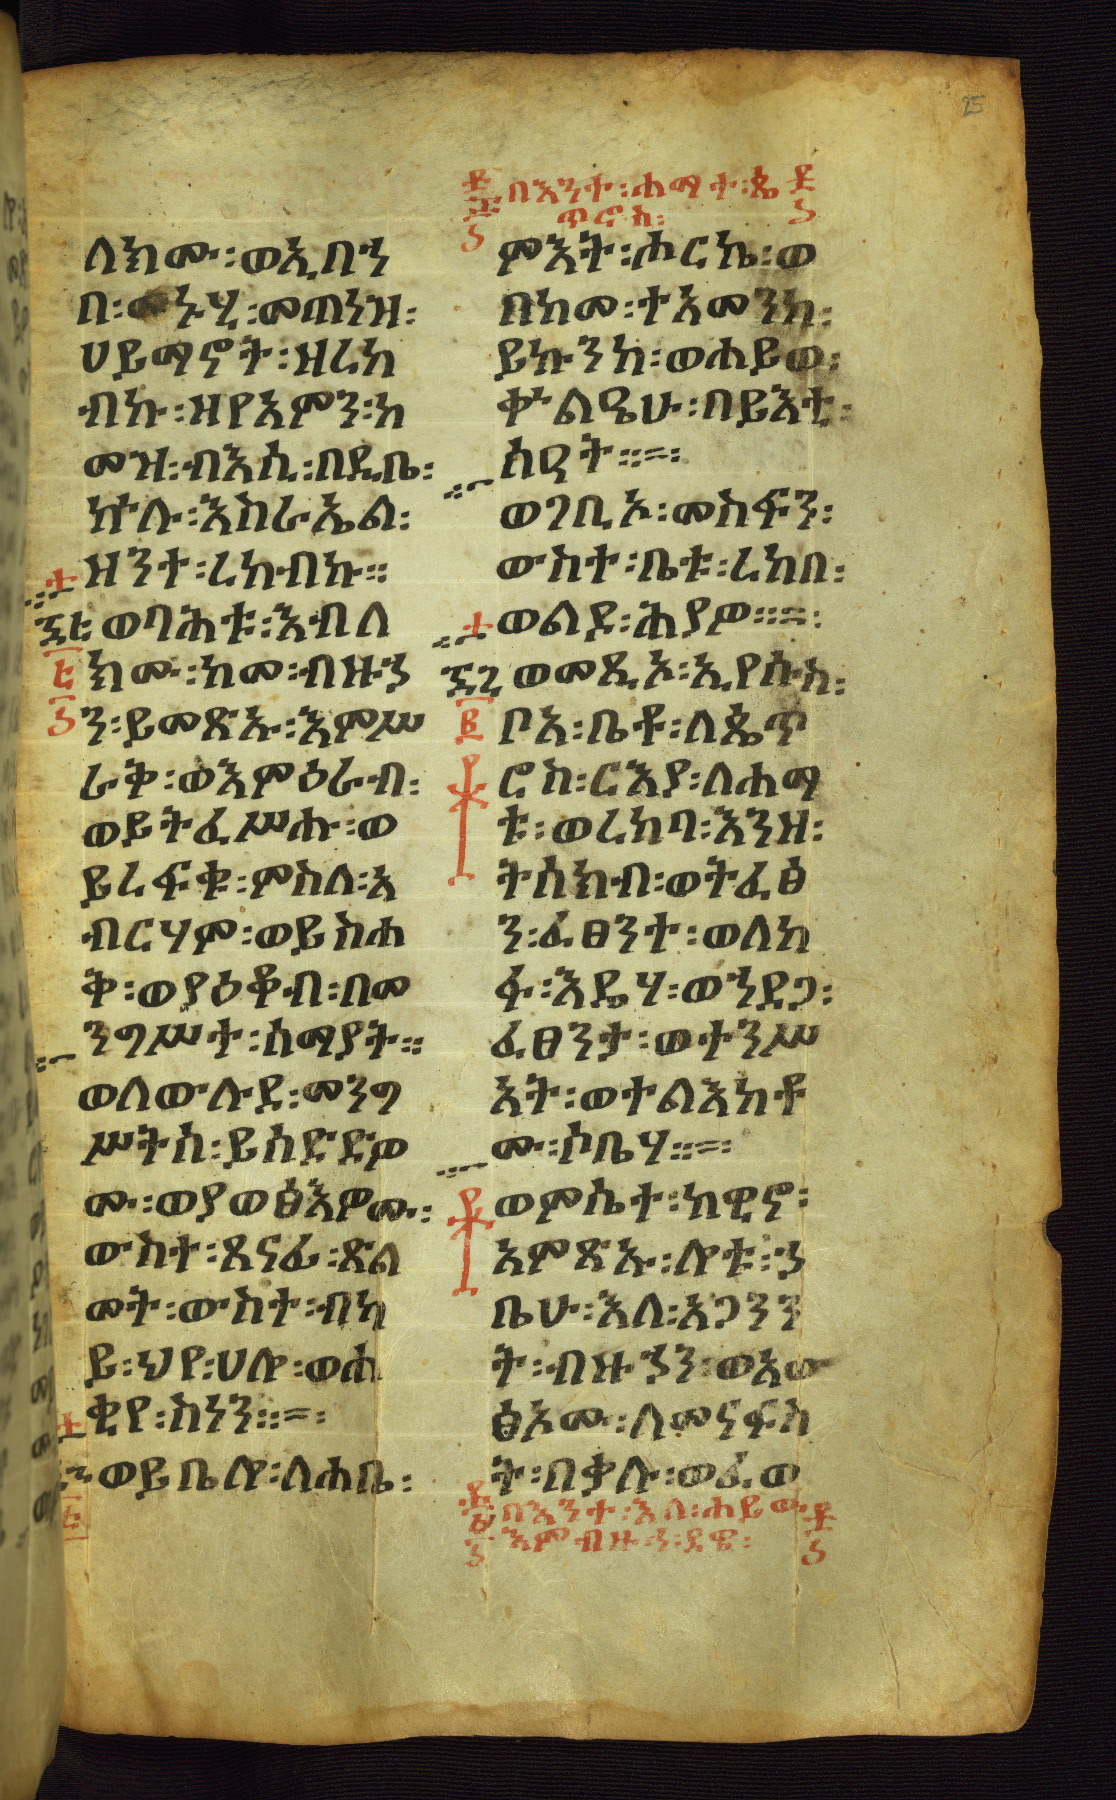 25
በእንተ፡ሐማተ፡ጴ
ጥሮስ፡
ለክሙ፡ወኢበኀ
በ፡መኑሂ፡መጠነዝ፡
ሀይማኖት፡ዘረከ
ብኩ፡ዘየአምን፡ከ
መዝ፡ብእሲ፡በዲቤ፡
ኵሉ፡እስራኤል፡
ዝንተ፡ረከብኩ።
ወባሕቱ፡እብለ
ክሙ፡ከመ፡ብዙኃ
ን፡ይመጽኡ፡እምሥ
ራቅ፡ወእምዕራብ፡
ወይትፌሥሑ፡ወ
ይረፍቁ፡ምስለ፡አ
ብርሃም፡ወይስሐ
ቅ፡ወያዕቆብ፡በመ
ንግሥተ፡ሰማያት።
ወለውሉደ፡መንግ
ሥትሰ፡ይሰድድዎ
ሙ፡ወያወፅእዎሙ፡
ውስተ፡ጸናፊ፡ጽል
መት፡ውስተ፡ብካ
ይ፡ህየ፡ሀሎ፡ወሐ
ቂየ፡ስነን።=፡
ወይቤሎ፡ለሐቤ፡
ምእት፡ሑርኬ፡ወ
በከመ፡ተአመንከ፡
ይኩንከ፡ወሐይወ፡
ቍልዔሁ፡በይእቲ፡
ሰዓት።=፡
ወገቢኦ፡መስፍን፡
ውስተ፡ቤቱ፡ረከበ፡
ወልደ፡ሕያዎ።=፡
ወመጺኦ፡ኢየሱስ፡
ቦአ፡ቤቶ፡ለጴጥ
ሮስ፡ርእያ፡ለሐማ
ቱ፡ወረከባ፡እንዘ፡
ትሰክብ፡ወትፈፅ
ን፡ፈፀንተ፡ወለከ
ፋ፡እዴሃ፡ወኀደጋ፡
ፈፀንታ፡ወተንሥ
አት፡ወተልእከቶ
ሙ፡ሶቤሃ።=፡
ወምሴተ፡ከዊኖ፡
አምጽኡ፡ሎቱ፡ኃ
ቤሁ፡እለ፡አጋንን
ት፡ብዙኃን፡ወአው
ፅኦሙ፡ለመናፍስ
ት፡በቃሉ፡ወፈወ
በእንተ፡እለ፡ሐይወ
እምብዙኅ፡ደዌ፡